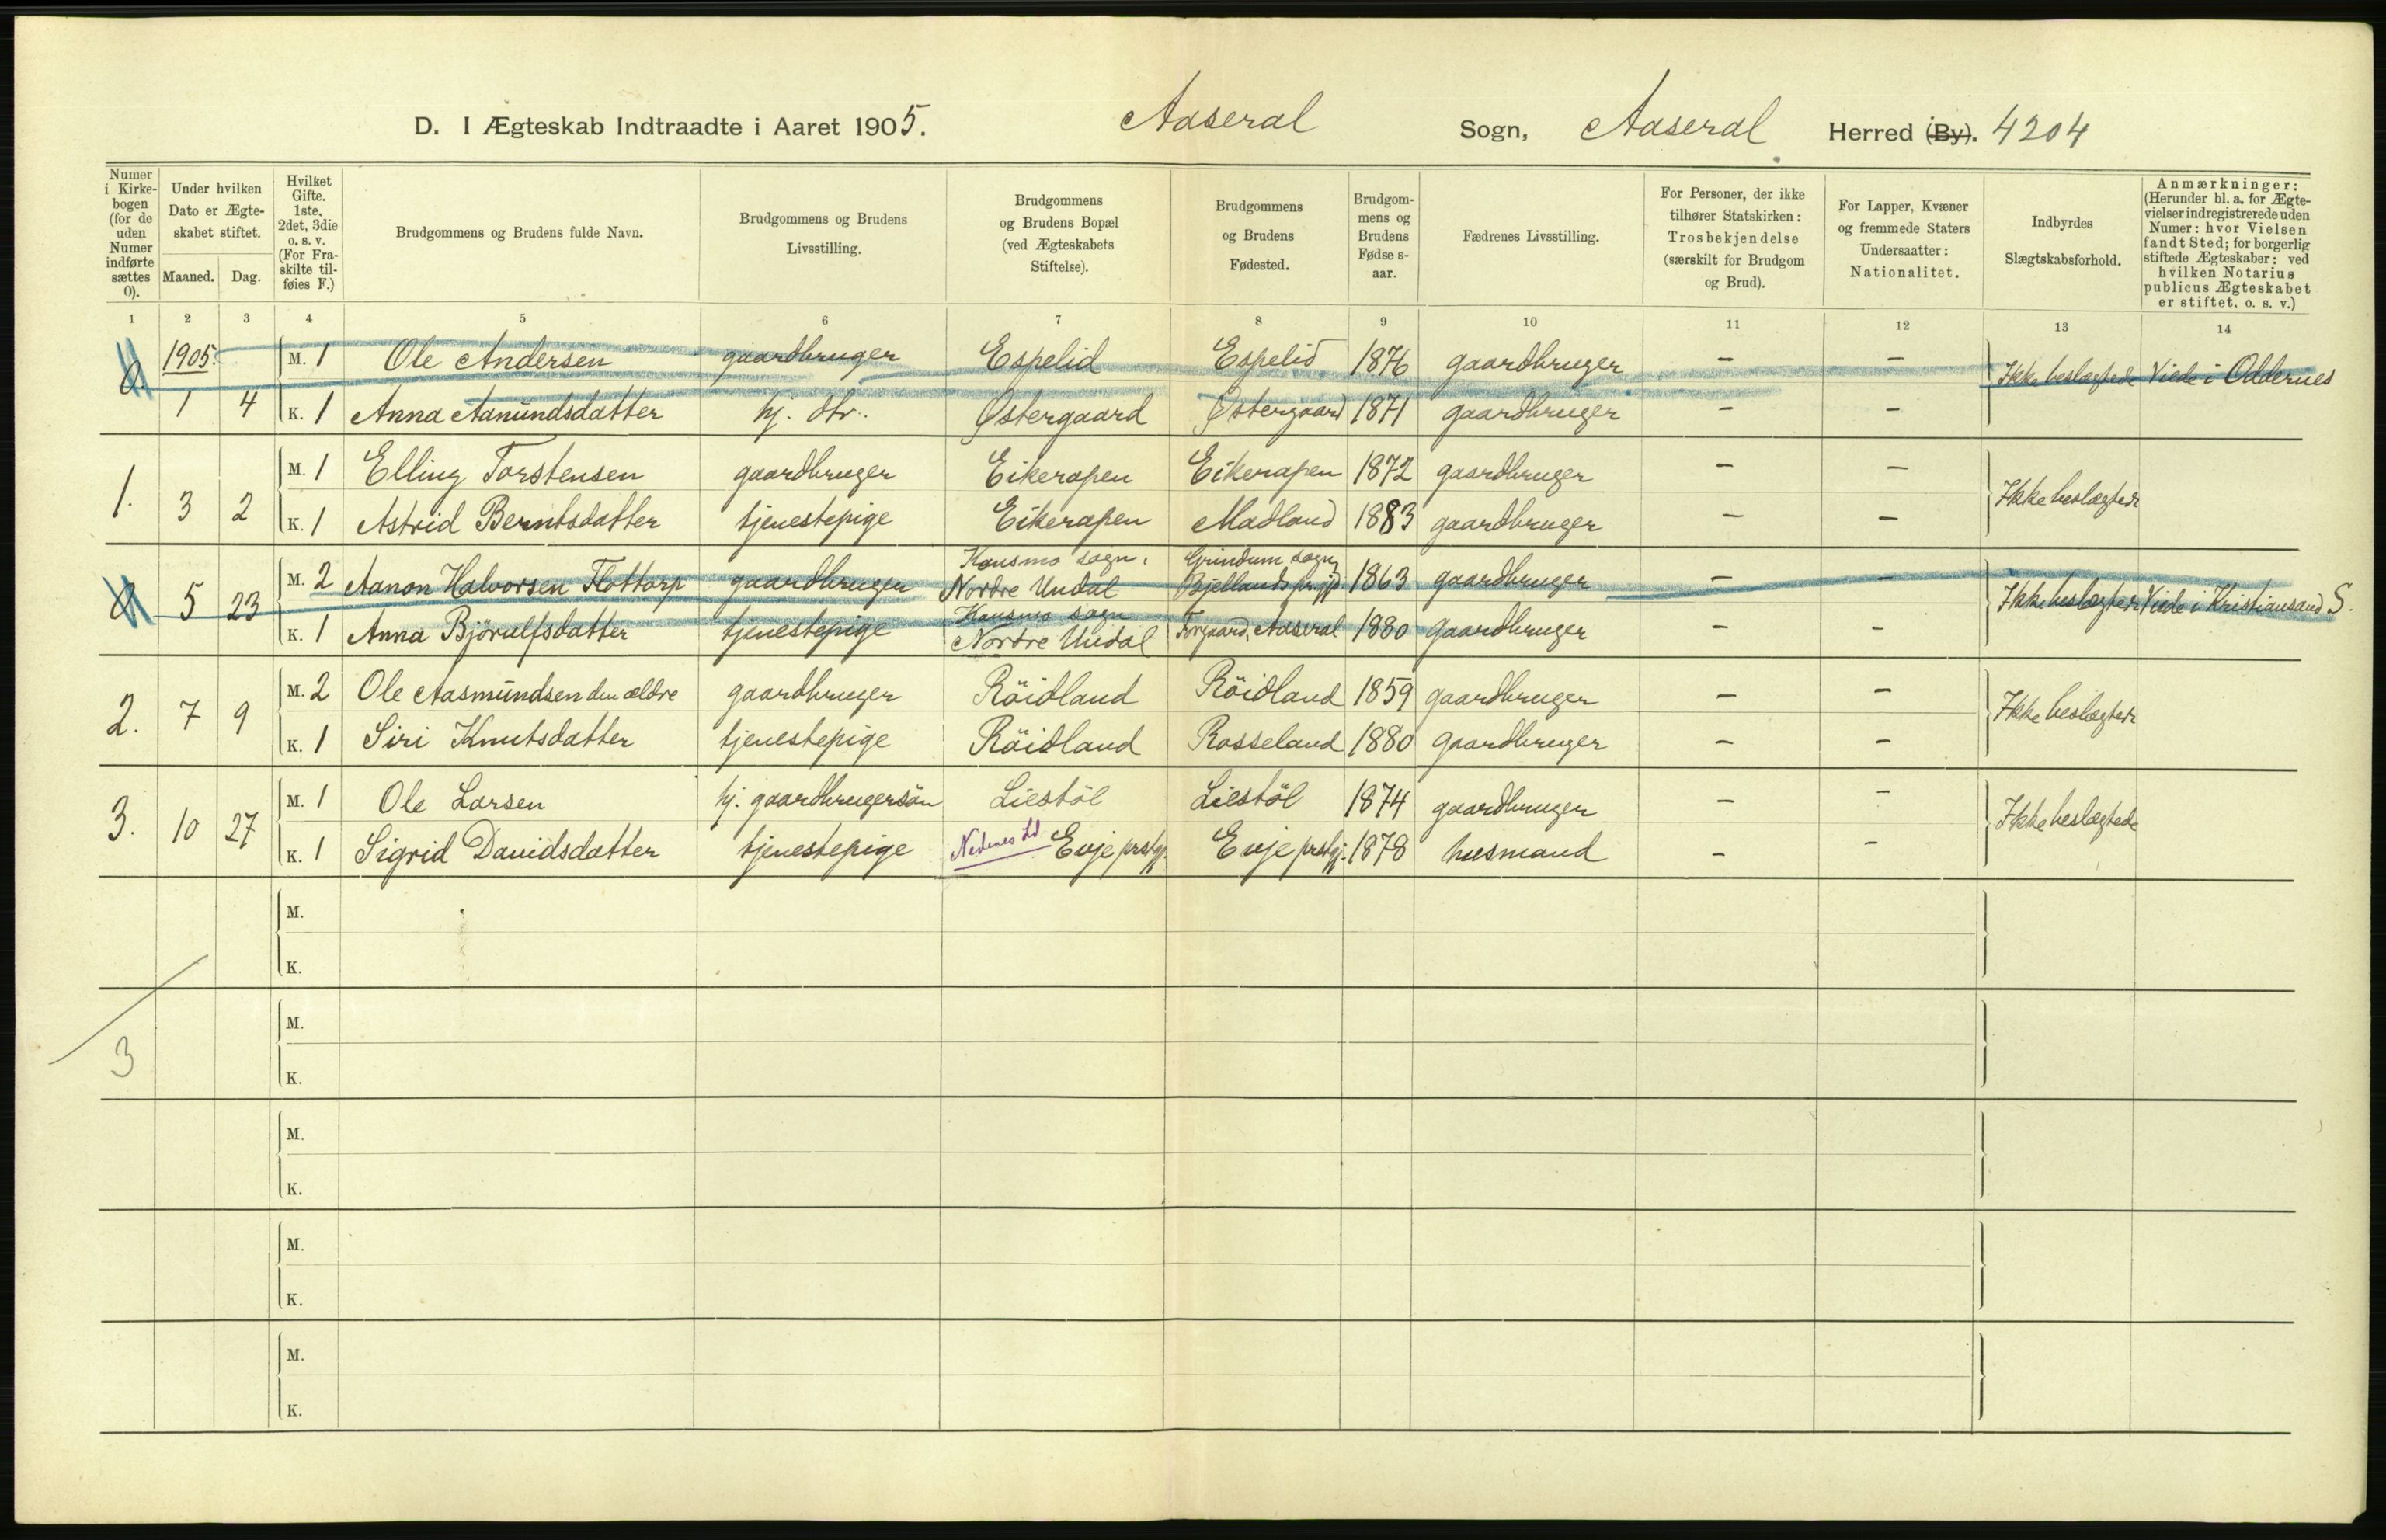 D. I Ægteskab Indtraadte i Aaret 1905. Aaseral Sogn, Aaseral Herred (By). 4204
Numer i Kirkebogen (for de uden Numer indførte sættes 0).
Under hvilken Dato er Ægteskabet stiftet.
Maaned. Dag.
Hvilket Gifte. 1ste, 2det, 3die o. s. v. (For Fraskilte tilføies F.)
Brudgommens og Brudens fulde Navn.
Brudgommens og Brudens Livsstilling.
Brudgommens og Brudens Bopæl (ved Ægteskabets Stiftelse).
Brudgommens og Brudens Fødested.
Brudgommens og Brudens Fødselsaar.
Fædrenes Livsstilling.
For Personer, der ikke tilhører Statskirken: Trosbekjendelse (særskilt for Brudgom og Brud).
For Lapper, Kvæner og fremmede Staters Undersaatter: Nationalitet.
Indbyrdes Slægtskabsforhold.
Anmærkninger: (Herunder bl. a. for Ægtevielser indregistrerede uden Numer: hvor Vielsen fandt Sted; for borgerlig stiftede Ægteskaber: ved hvilken Notarius publicus Ægteskabet er stiftet, o. s. v.)
1 2 3 4 5 6 7 8 9 10 11 12 13 14
0. 1905. M. 1 Ole Andersen gaardbruger Espelid Espelid 1876 gaardbruger — — Ikke beslægtede Viede i Oddernes
1 4 K. 1 Anna Aanundsdatter hj. dtr. Østergaard Østergaard 1871 gaardbruger — —
M. 1 Elling Torstensen gaardbruger Eikerapen Eikerapen 1872 gaardbruger — —
1. 3 2 K. 1 Astrid Berntsdatter tjenestepige Eikerapen Madland 1883 gaardbruger — — Ikke beslægtede
0 5 23 M. 2 Aanon Halvorsen Flottorp gaardbruger Konsmo sogn, Nordre Undal Grindum sogn, Bjellands prgjd 1863 gaardbruger — — Ikke beslægtede Viede i Kristiansand S.
K. 1 Anna Bjørulfsdatter tjenestepige Konsmo sogn Nordre Undal Torgaard, Aaseral 1880 gaardbruger — —
2. 7 9 M. 2 Ole Aasmundsen den ældre gaardbruger Röidland Röidland 1859 gaardbruger — — Ikke beslægtede
K. 1 Siri Knutsdatter tjenestepige Röidland Rosseland 1880 gaardbruger — —
3. 10 27 M. 1 Ole Larsen hj. gaardbrugersön Liestöl Liestöl 1874 gaardbruger — — Ikke beslægtede
K. 1 Sigrid Davidsdatter tjenestepige Nedenes Evje prstgj. Evje prstgj. 1878 husmand — —
M.
K.
M.
3
K.
M.
K.
M.
K.
M.
K.